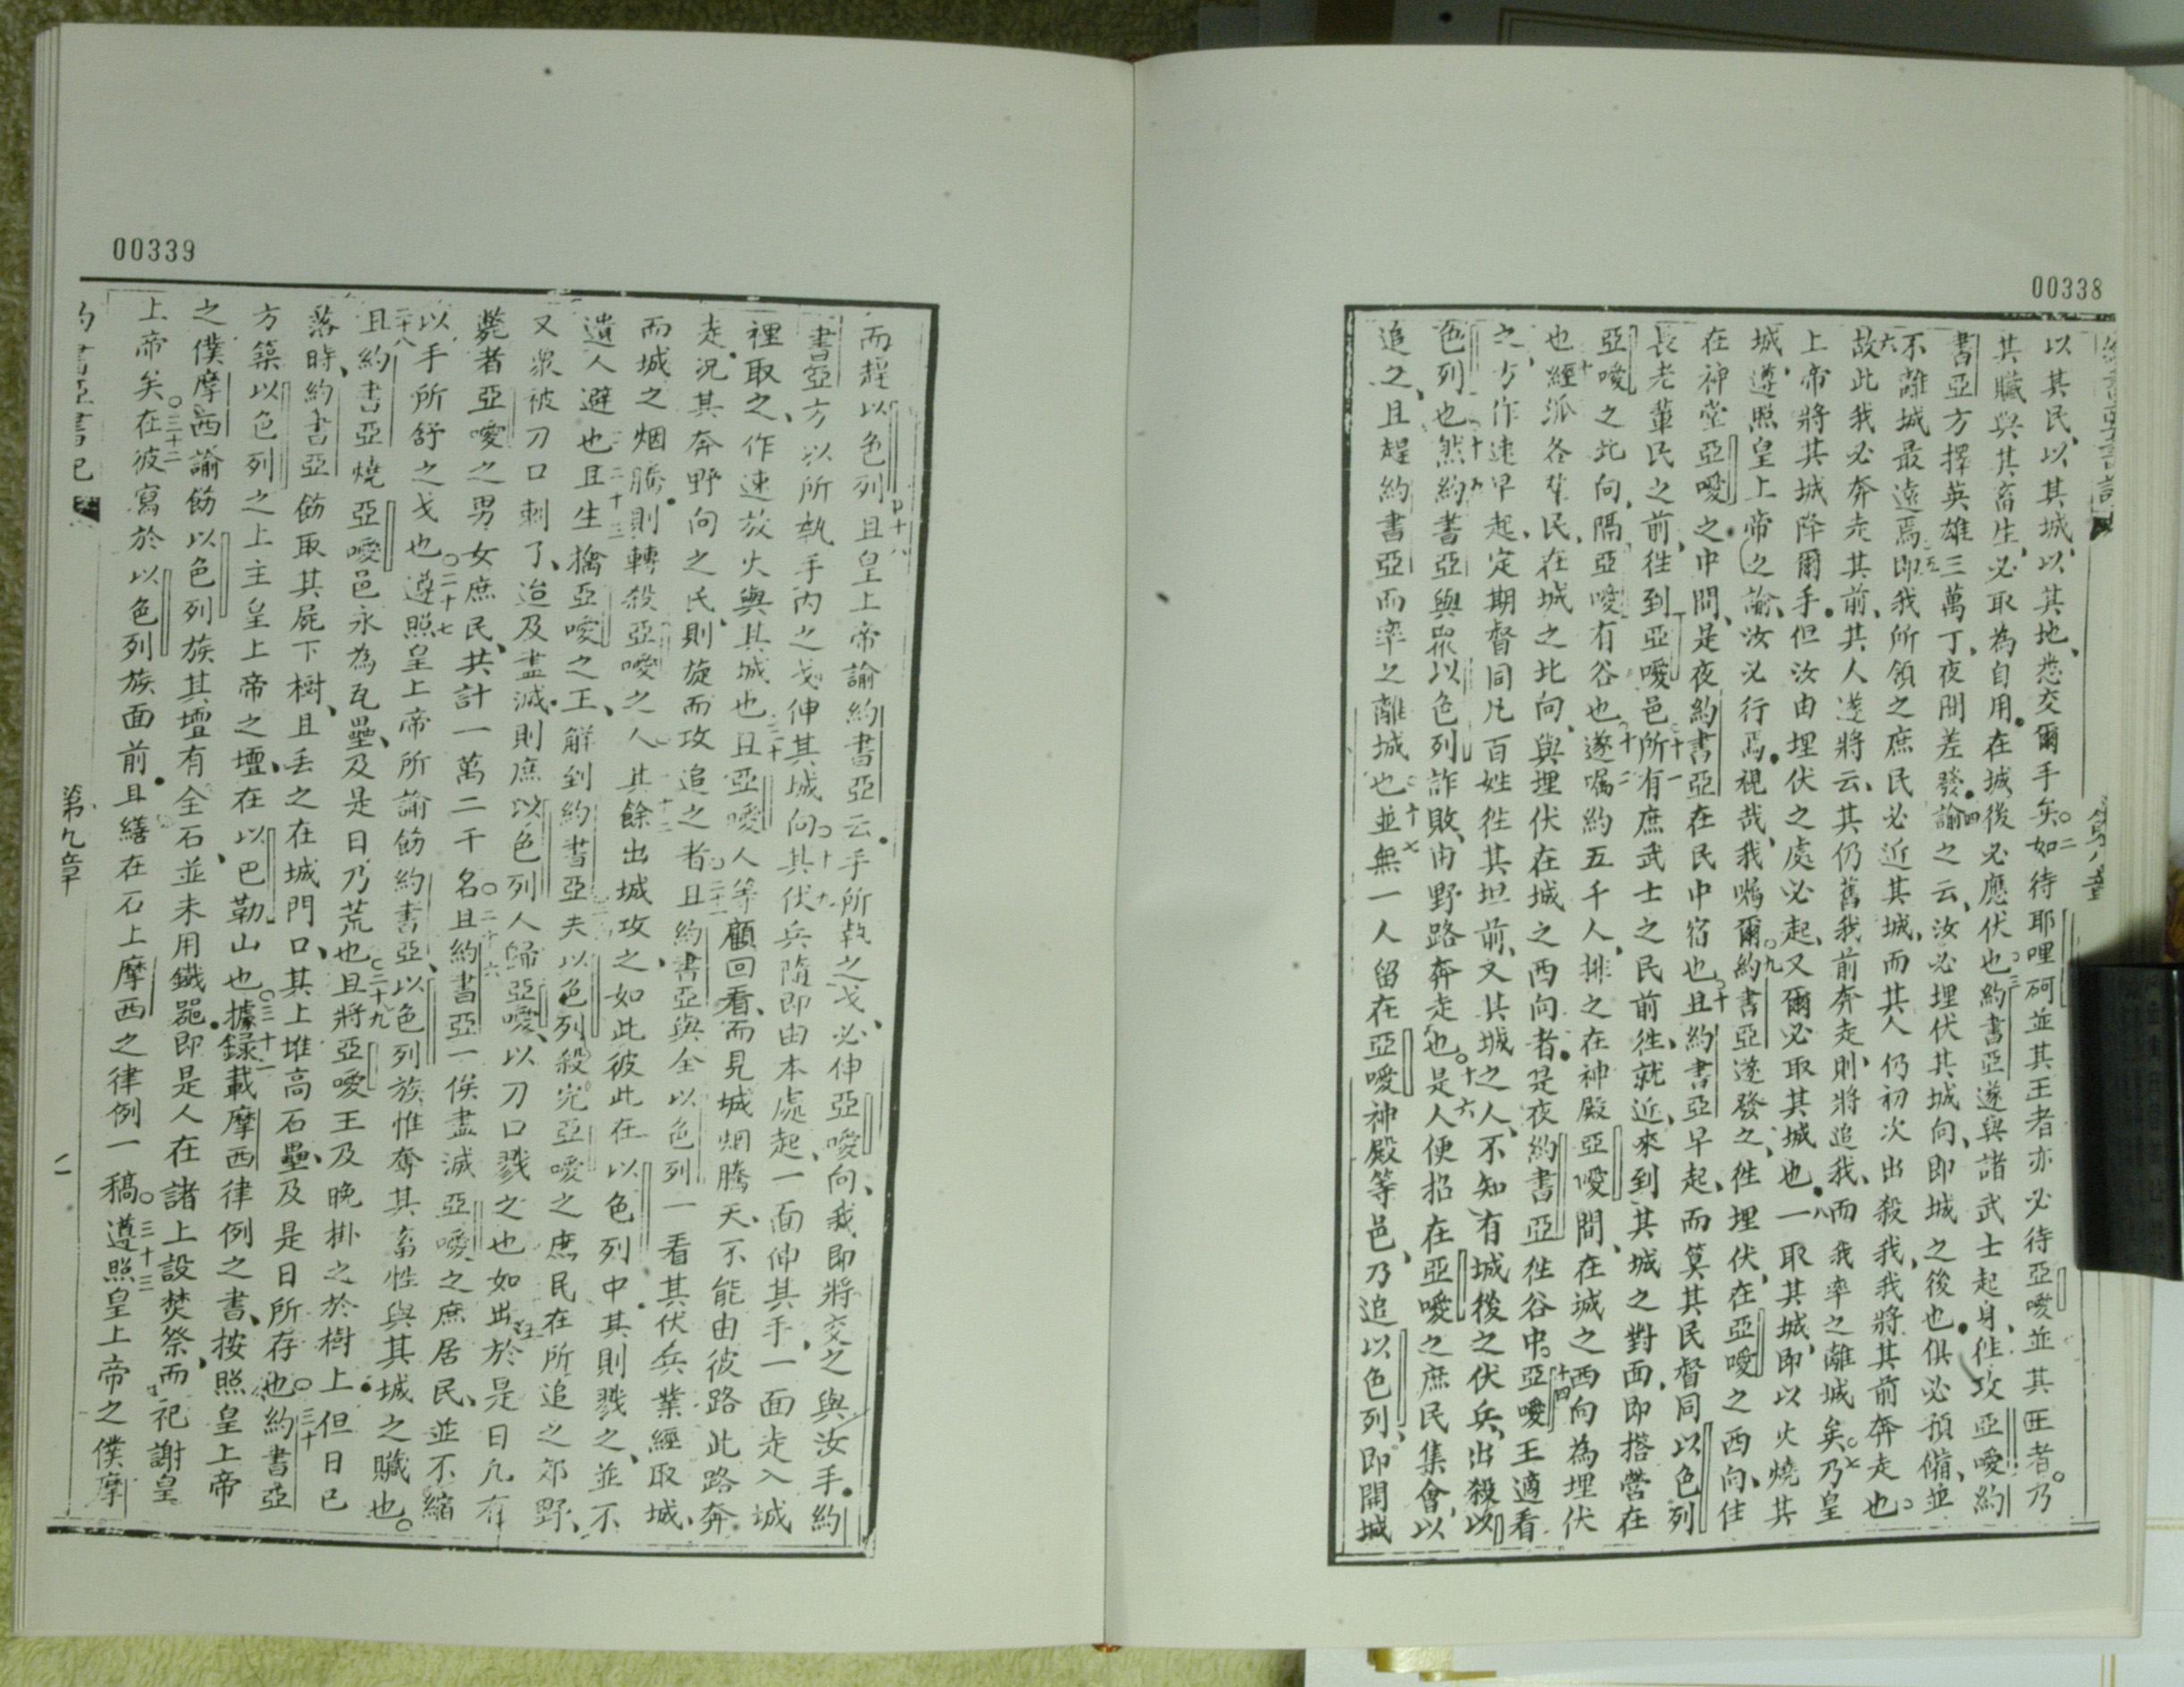 00338
以其民、以其城、以其地、悉交爾手矣。○二如待耶哩砢並其王者亦必待亞噯並其王者。乃
其贓與其畜生、必取為自用。在城後必應伏也○三約書亞遂與諸武士起身、徃攻亞噯約
書亞方擇英雄三萬丁、夜間差發。○四諭之云、汝必埋伏其城向、即城之後也。俱必預備、並
不離城最遠焉○五即我所領之庶民必近其城、而其人仍初次出殺我、我將其前奔走也。
○六故此我必奔走其前、其人遂將云、其仍舊我前奔走、則將追我、而我率之離城矣○七乃皇
上帝將其城降爾手。但汝由埋伏之處必起、又爾必取其城也。○八一取其城、即以火燒其
城、遵照皇上帝之諭、汝必行焉。視哉、我囑爾○九約書亞遂發之、徃埋伏、在亞噯之西向、住
在神堂亞噯之中間、是夜約書亞在民中宿也○十且約書亞早起、而算其民督同以色列
長老輩民之前、徃到亞噯邑○十一所有庶武士之民前徃、就近、來到其城之對面、即搭營在
亞噯之北向、隔亞噯有谷也○十二遂囑約五千人、排之在神殿亞噯間、在城之西向為埋伏
也○十三經派各軍民、在城之北向、與埋伏在城之西向者。是夜約書亞徃谷中。○十四亞噯王適看
之、方作速早起、定期督同凡百姓徃其坦前、又其城之人、不知有城後之伏兵、出殺以
色列也○十五然約書亞與眾以色列詐敗、由野路奔走也。○十六是人便招在亞噯之庶民集會、以
追之、且趕約書亞而率之離城也○十七並無一人留在亞噯神殿等邑、乃追以色列、即開城
00339
而趕以色列○十八且皇上帝諭約書亞云。手所執之戈、必伸亞噯向、我即將交之與汝手。約
書亞方以所執手內之戈伸其城向○十九其伏兵隨即由本處起、一面伸其手、一面走入城
裡取之、作速放火與其城也○二十且亞噯人等顧回看、而見城烟騰天、不能由彼路此路奔
走。況其奔野向之民、則旋而攻追之者○二十一且約書亞與全以色列一看其伏兵業經取城、
而城之烟騰。則轉殺亞噯之人○二十二其餘出城攻之如此彼此在以色列中、其則戮之、並不
遺人避也○二十三且生擒亞噯之王、解到約書亞○二十四夫以色列殺完亞噯之庶民在所追之郊野、
又眾被刀口刺了、迨及盡滅。則庶以色列人歸亞噯、以刀口戮之也○二十五如出於是日凡有
斃者亞噯之男女庶民、共計一萬二千名○二十六且約書亞一俟盡滅亞噯之庶居民、並不縮
以手所舒之戈也○二十七遵照皇上帝所諭飭約書亞、以色列族惟奪其畜牲與其城之贓也。
○二十八且約書亞燒亞噯邑永為瓦壘、及是日乃荒也○二十九且將亞噯王及晚掛之於樹上。但日已
落時、約書亞飭取其屍下樹、且丢之在城門口、其上堆高石壘、及是日所存也○三十約書亞
方築以色列之上主皇上帝之壇、在以巴勒山也○三十一據録載摩西律例之書、按照皇上帝
之僕摩西諭飭以色列族其壇有全石、並未用鐵器。即是人在諸上設焚祭、而祀謝皇
上帝矣○三十二在彼寫於以色列族面前。且繕在石上摩西之律例一稿○三十三遵照皇上帝之僕摩
約書亞書記
第九章